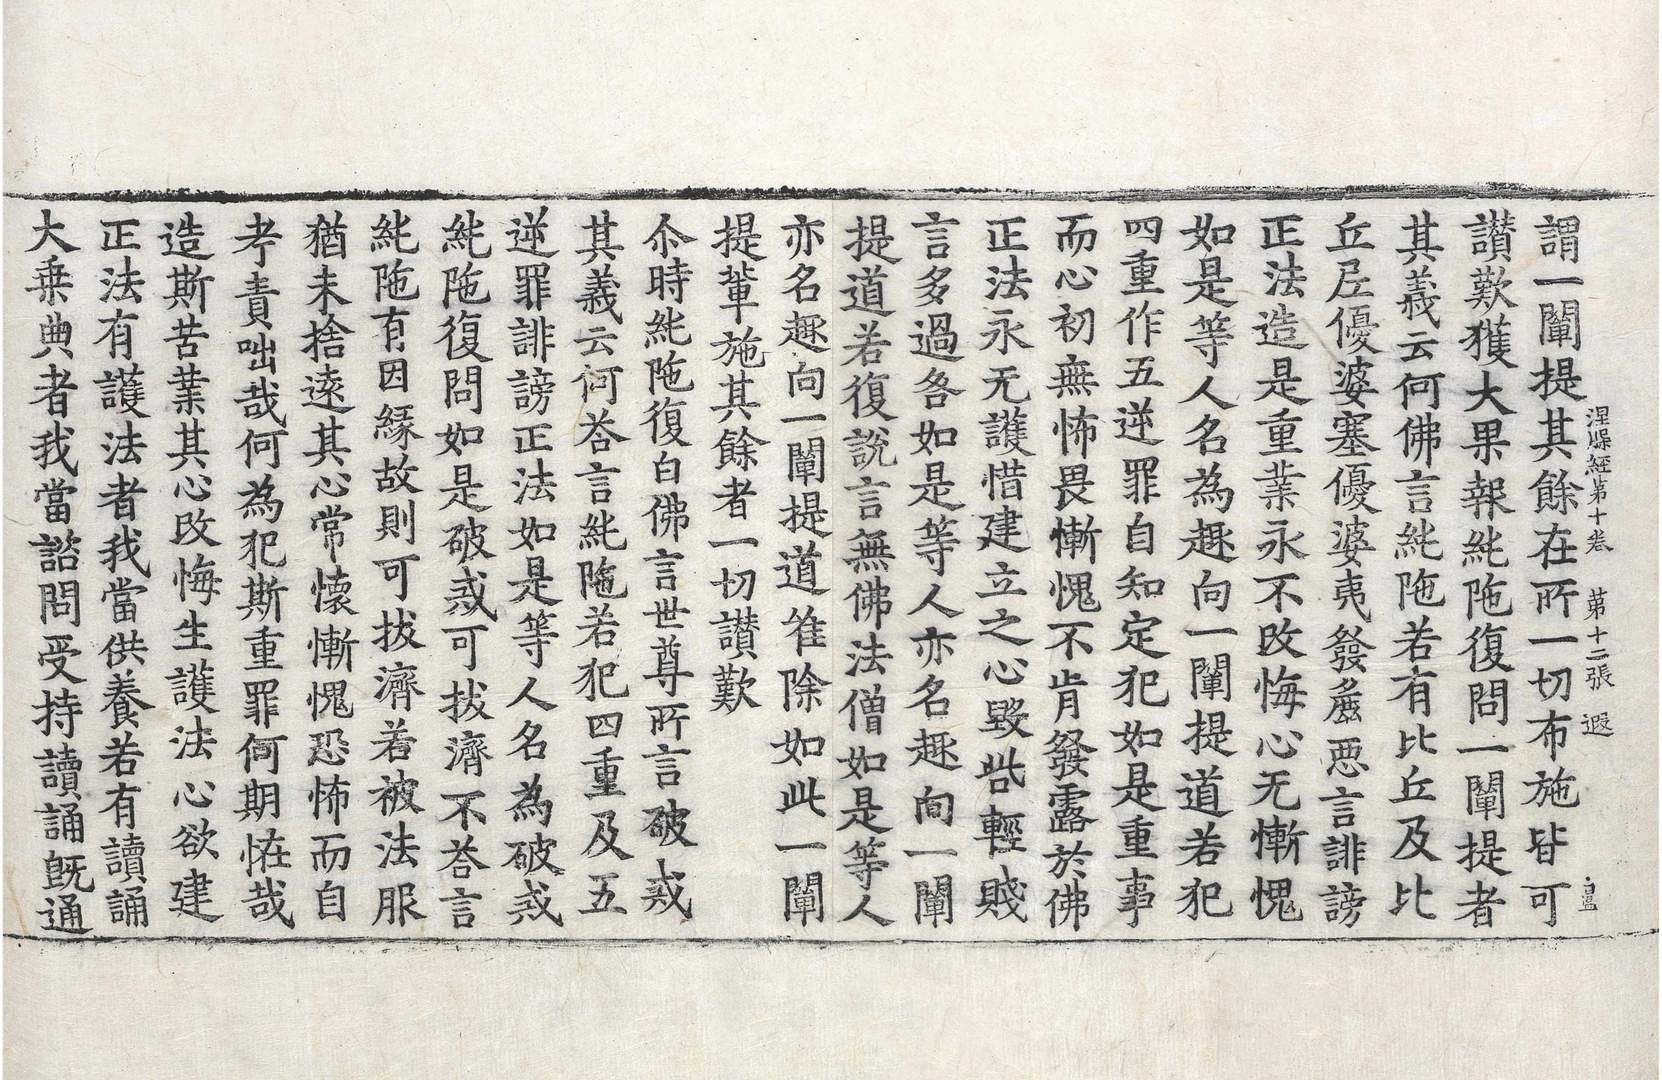 涅槃經第十卷　第十二張　遐
謂一闡提其餘在所一切布施皆可
讃歎獲大果報純陁復問一闡提者
其義云何佛言純陁若有比丘及比
丘尼優婆塞優婆夷發麁惡言誹謗
正法造是重業永不改悔心无慚愧
如是等人名為趣向一闡提道若犯
四重作五逆罪自知定犯如是重事
而心初無怖畏慚愧不肯發露於佛
正法永无護惜建立之心毀呰輕賤
言多過咎如是等人亦名趣向一闡
提道若復說言無佛法僧如是等人
亦名趣向一闡提道唯除如此一闡
提輩施其餘者一切讃歎
尒時純陁復白佛言世尊所言破戒
其義云何荅言純陁若犯四重及五
逆罪誹謗正法如是等人名為破戒
純陁復問如是破戒可拔濟不荅言
純陁有因緣故則可拔濟若被法服
猶未捨遠其心常懷慚愧恐怖而自
考責咄哉何為犯斯重罪何期恠哉
造斯苦業其心改悔生護法心欲建
正法有護法者我當供養若有讀誦
大乗典者我當諮問受持讀誦旣通